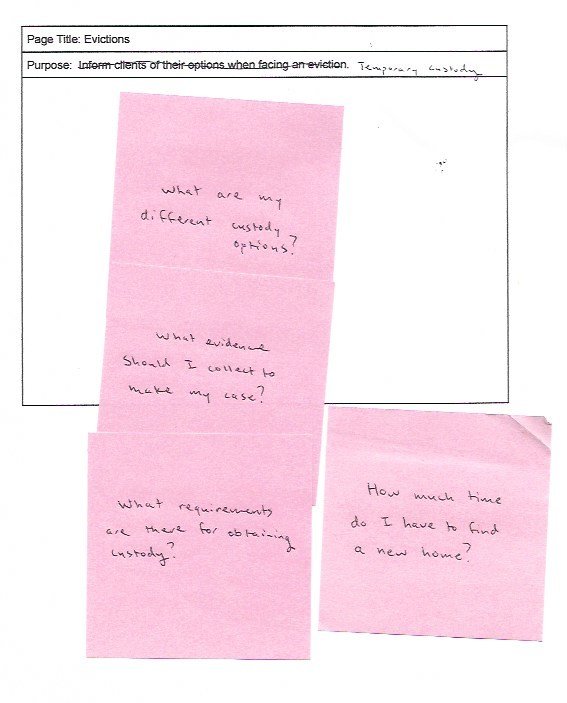 Page Title: Evictions
Purpose: Inform clients of their options when facing an eviction. Temporary custody
What are my
different custody
options?
What evidence
should I collect to
make my case?
What requirements
are there for obtaining
custody?
How much time
do I have to find
a new home?